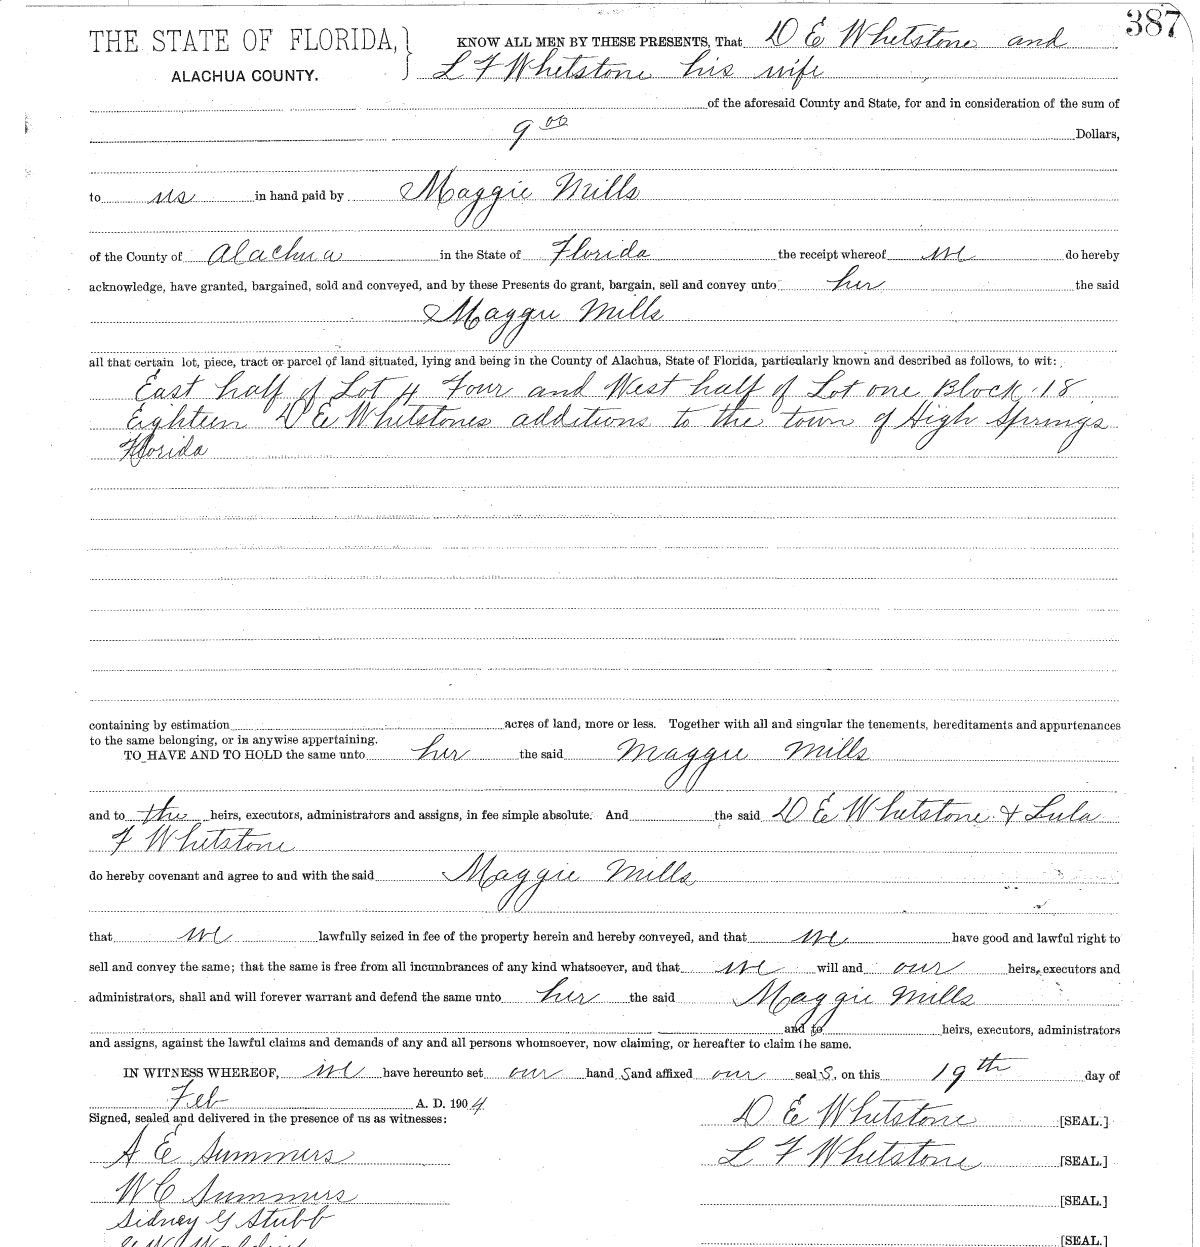 387
THE STATE OF FLORIDA, } KNOW ALL MEN BY THESE PRESENTS, That D E Whetstone and
ALACHUA COUNTY. L F Whetstone his wife
of the aforesaid County and State, for and in consideration of the sum of
9 00 Dollars,
to us in hand paid by Maggie Mills
of the County of Alachua in the State of Florida the receipt whereof we do hereby
acknowledge, have granted, bargained, sold and conveyed, and by these Presents do grant, bargain, sell and convey unto her the said
Maggie Mills
all that certain lot, piece, tract or parcel of land situated, lying and being in the County of Alachua, State of Florida, particularly known and described as follows, to wit:
East half of Lot 4 Four and West half of Lot one Block 18
Eighteen D E Whetstones additions to the town of High Springs
Florida
containing by estimation acres of land, more or less. Together with all and singular the tenements, hereditaments and appurtenances
to the same belonging, or in anywise appertaining.
TO HAVE AND TO HOLD the same unto her the said Maggie Mills
and to the heirs, executors, administrators and assigns, in fee simple absolute. And the said D E Whetstone & Lula
F Whetstone
do hereby covenant and agree to and with the said Maggie Mills
that we lawfully seized in fee of the property herein and hereby conveyed, and that we have good and lawful right to
sell and convey the same; that the same is free from all incumbrances of any kind whatsoever, and that we will and our heirs, executors and
administrators, shall and will forever warrant and defend the same unto her the said Maggie Mills
and to heirs, executors, administrators
and assigns, against the lawful claims and demands of any and all persons whomsoever, now claiming, or hereafter to claim the same.
IN WITNESS WHEREOF, we have hereunto set our hand s and affixed our seal s, on this 19th day of
Feb A. D. 1904
Signed, sealed and delivered in the presence of us as witnesses: D E Whetstone [SEAL.]
A E Summers L F Whetstone [SEAL.]
W C Summers [SEAL.]
Sidney G Stubb
[SEAL.]